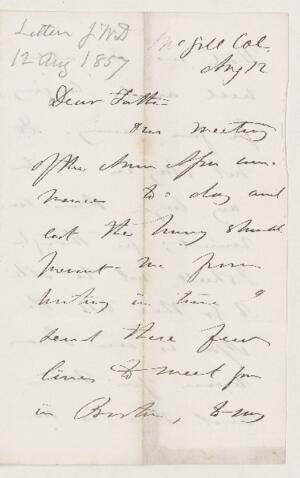 Letter JWD
12 Aug 1857
McGill Col.
Aug 12
Dear Father
Our meeting
of the Amn Assn com-
mences to-day and
lest the hurry should
prevent me from
writing in time to
send these few
lines to meet you
in Boston, to-my